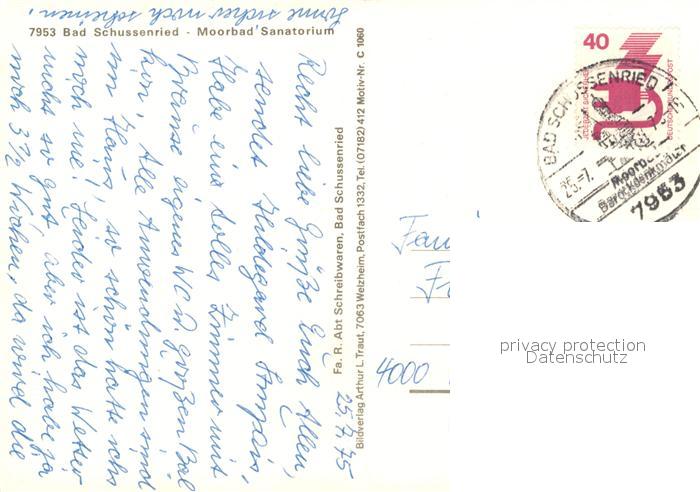 7953 Bad Schussenried - Moorbad Sanatorium
25.7.75
Recht liebe Grüße Euch Allen,
sendet Hildegard
Habe ein tolles Zimmer mit
Brause eigenes WC u. großen Bal
kon, Alle Anwendungen sind
im Haus, so schön hatte ichs
noch nie! Leider ist das Wetter
nicht so gut aber ich habe ja
noch 3½ Wochen, da wird die
Sonne sicher noch scheinen.
Fa. R. Abt Schreibwaren, Bad Schussenried
Bildverlag Arthur L. Traut, 7063 Welzheim, Postfach 1332, Tel. (07182) 412 Motiv-Nr. C 1060
40
DEUTSCHE BUNDESPOST
BAD SCHUSSENRIED 1
25.-7.
Moorbad
Barockdenkmäler
7953
Fam
4000
privacy protection
Datenschutz